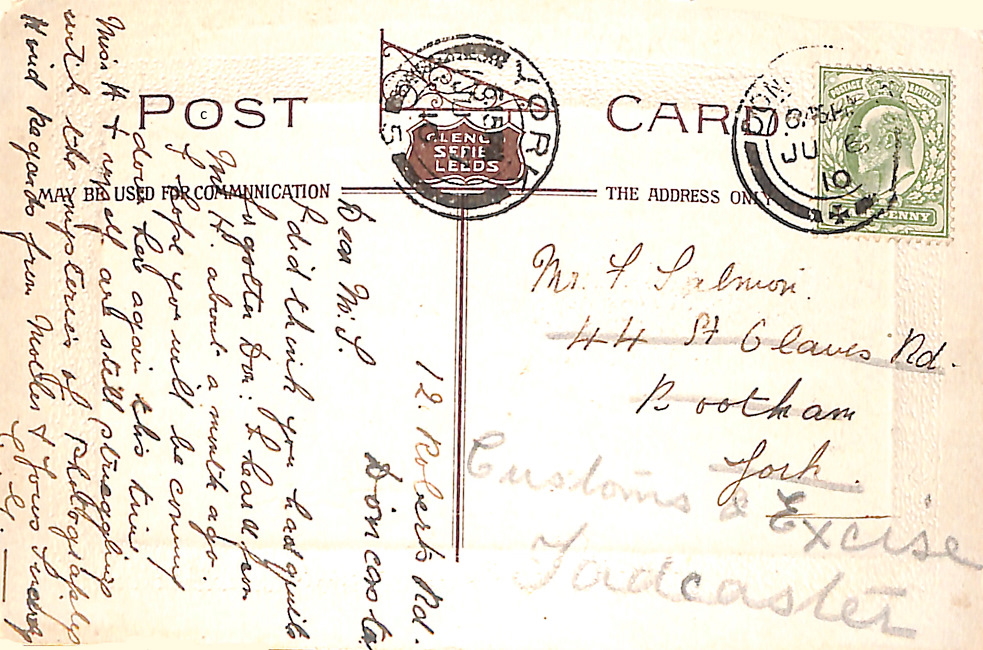 POST CARD
MAY BE USED FOR COMMUNICATION
THE ADDRESS ONLY
GLENCO
SERIES
LEEDS
YORK
JU 6
10
PENNY
12. Roberts Rd.
Doncaster
Dear Mr. S.
I did think you had quite
forgotten Don: I heard from
Mr H. about a month ago.
I hope you will be coming
down here again this time
Miss H & myself are still struggling
with the mysteries of Photography
Kind regards from Mother & Yours Sincerely
Mr. F. Salmon.
44 St Olaves Rd.
Bootham
York.
Customs & Excise
Tadcaster